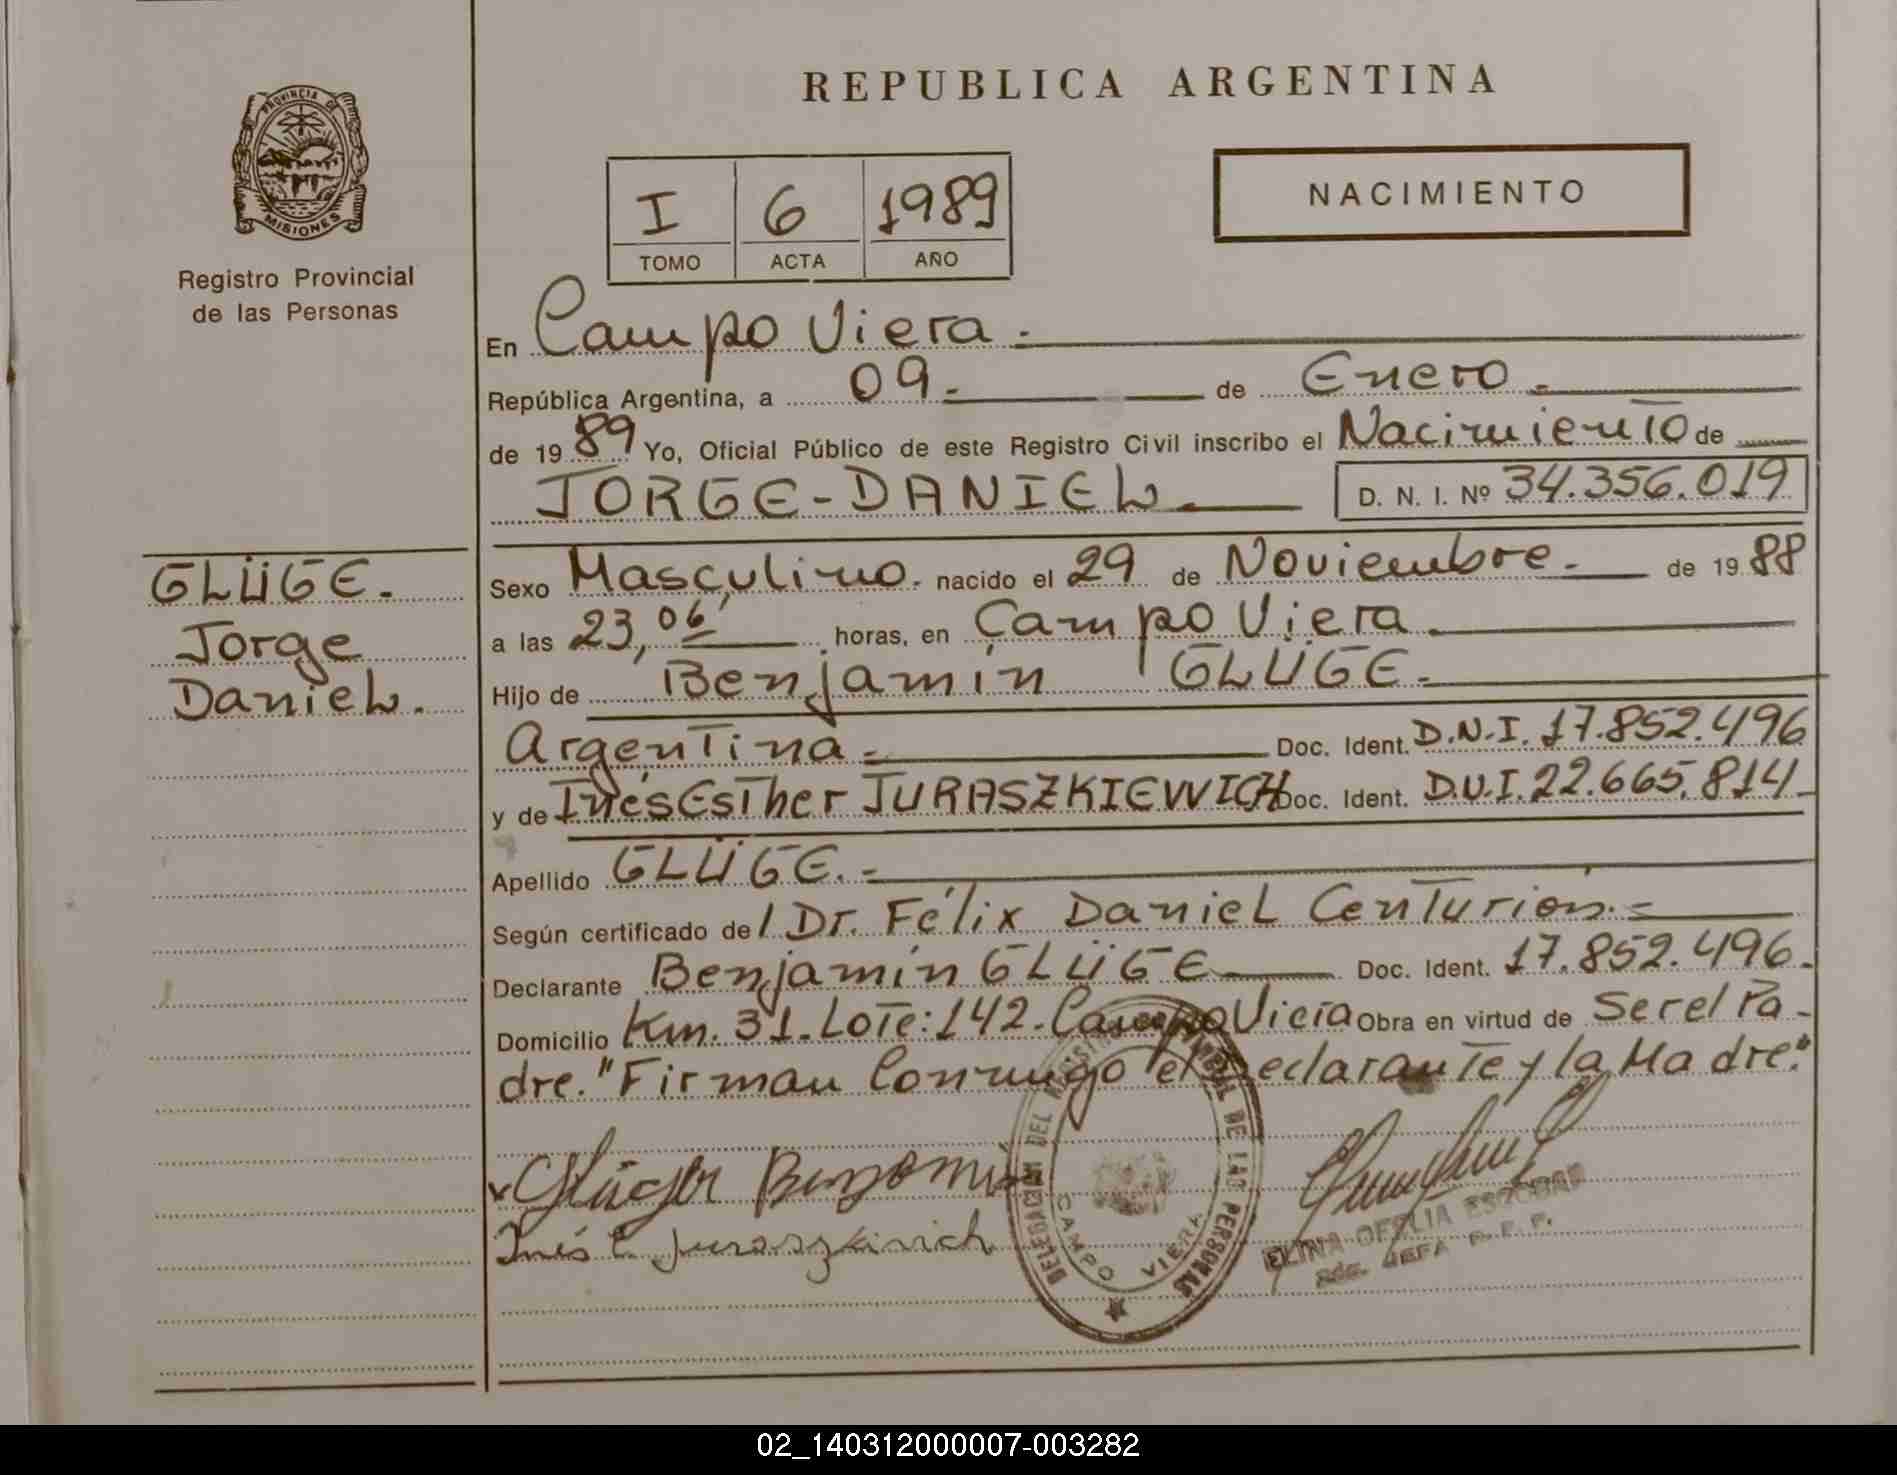 REPUBLICA ARGENTINA
PROVINCIA DE
MISIONES
Registro Provincial
de las Personas
I 6 1989
TOMO ACTA AÑO
NACIMIENTO
En Campo Viera.-
República Argentina, a 09.- de Enero.-
de 1989 Yo, Oficial Público de este Registro Civil inscribo el Nacimiento de
JORGE-DANIEL.
D. N. I. Nº 34.356.019
GLÜGE.
Jorge
Daniel.
Sexo Masculino. nacido el 29 de Noviembre.- de 1988
a las 23,06' horas, en Campo Viera.
Hijo de Benjamín GLÜGE.-
Argentina.- Doc. Ident. D.N.I. 17.852.496
y de Inés Esther JURASZKIEWICH Doc. Ident. D.N.I. 22.665.814-
Apellido GLÜGE.-
Según certificado de l Dr. Félix Daniel Centurión.-
Declarante Benjamín GLÜGE Doc. Ident. 17.852.496.
Domicilio Km. 31. Lote: 142. Campo Viera Obra en virtud de Ser el Pa-
dre. "Firman Conmigo el Declarante y la Madre."
DELEGACION DEL REGISTRO PROVINCIAL DE LAS PERSONAS
CAMPO VIERA
Inés E Juraszkievich
ELINA OFELIA ESCOBAR
JEFA
02_140312000007-003282